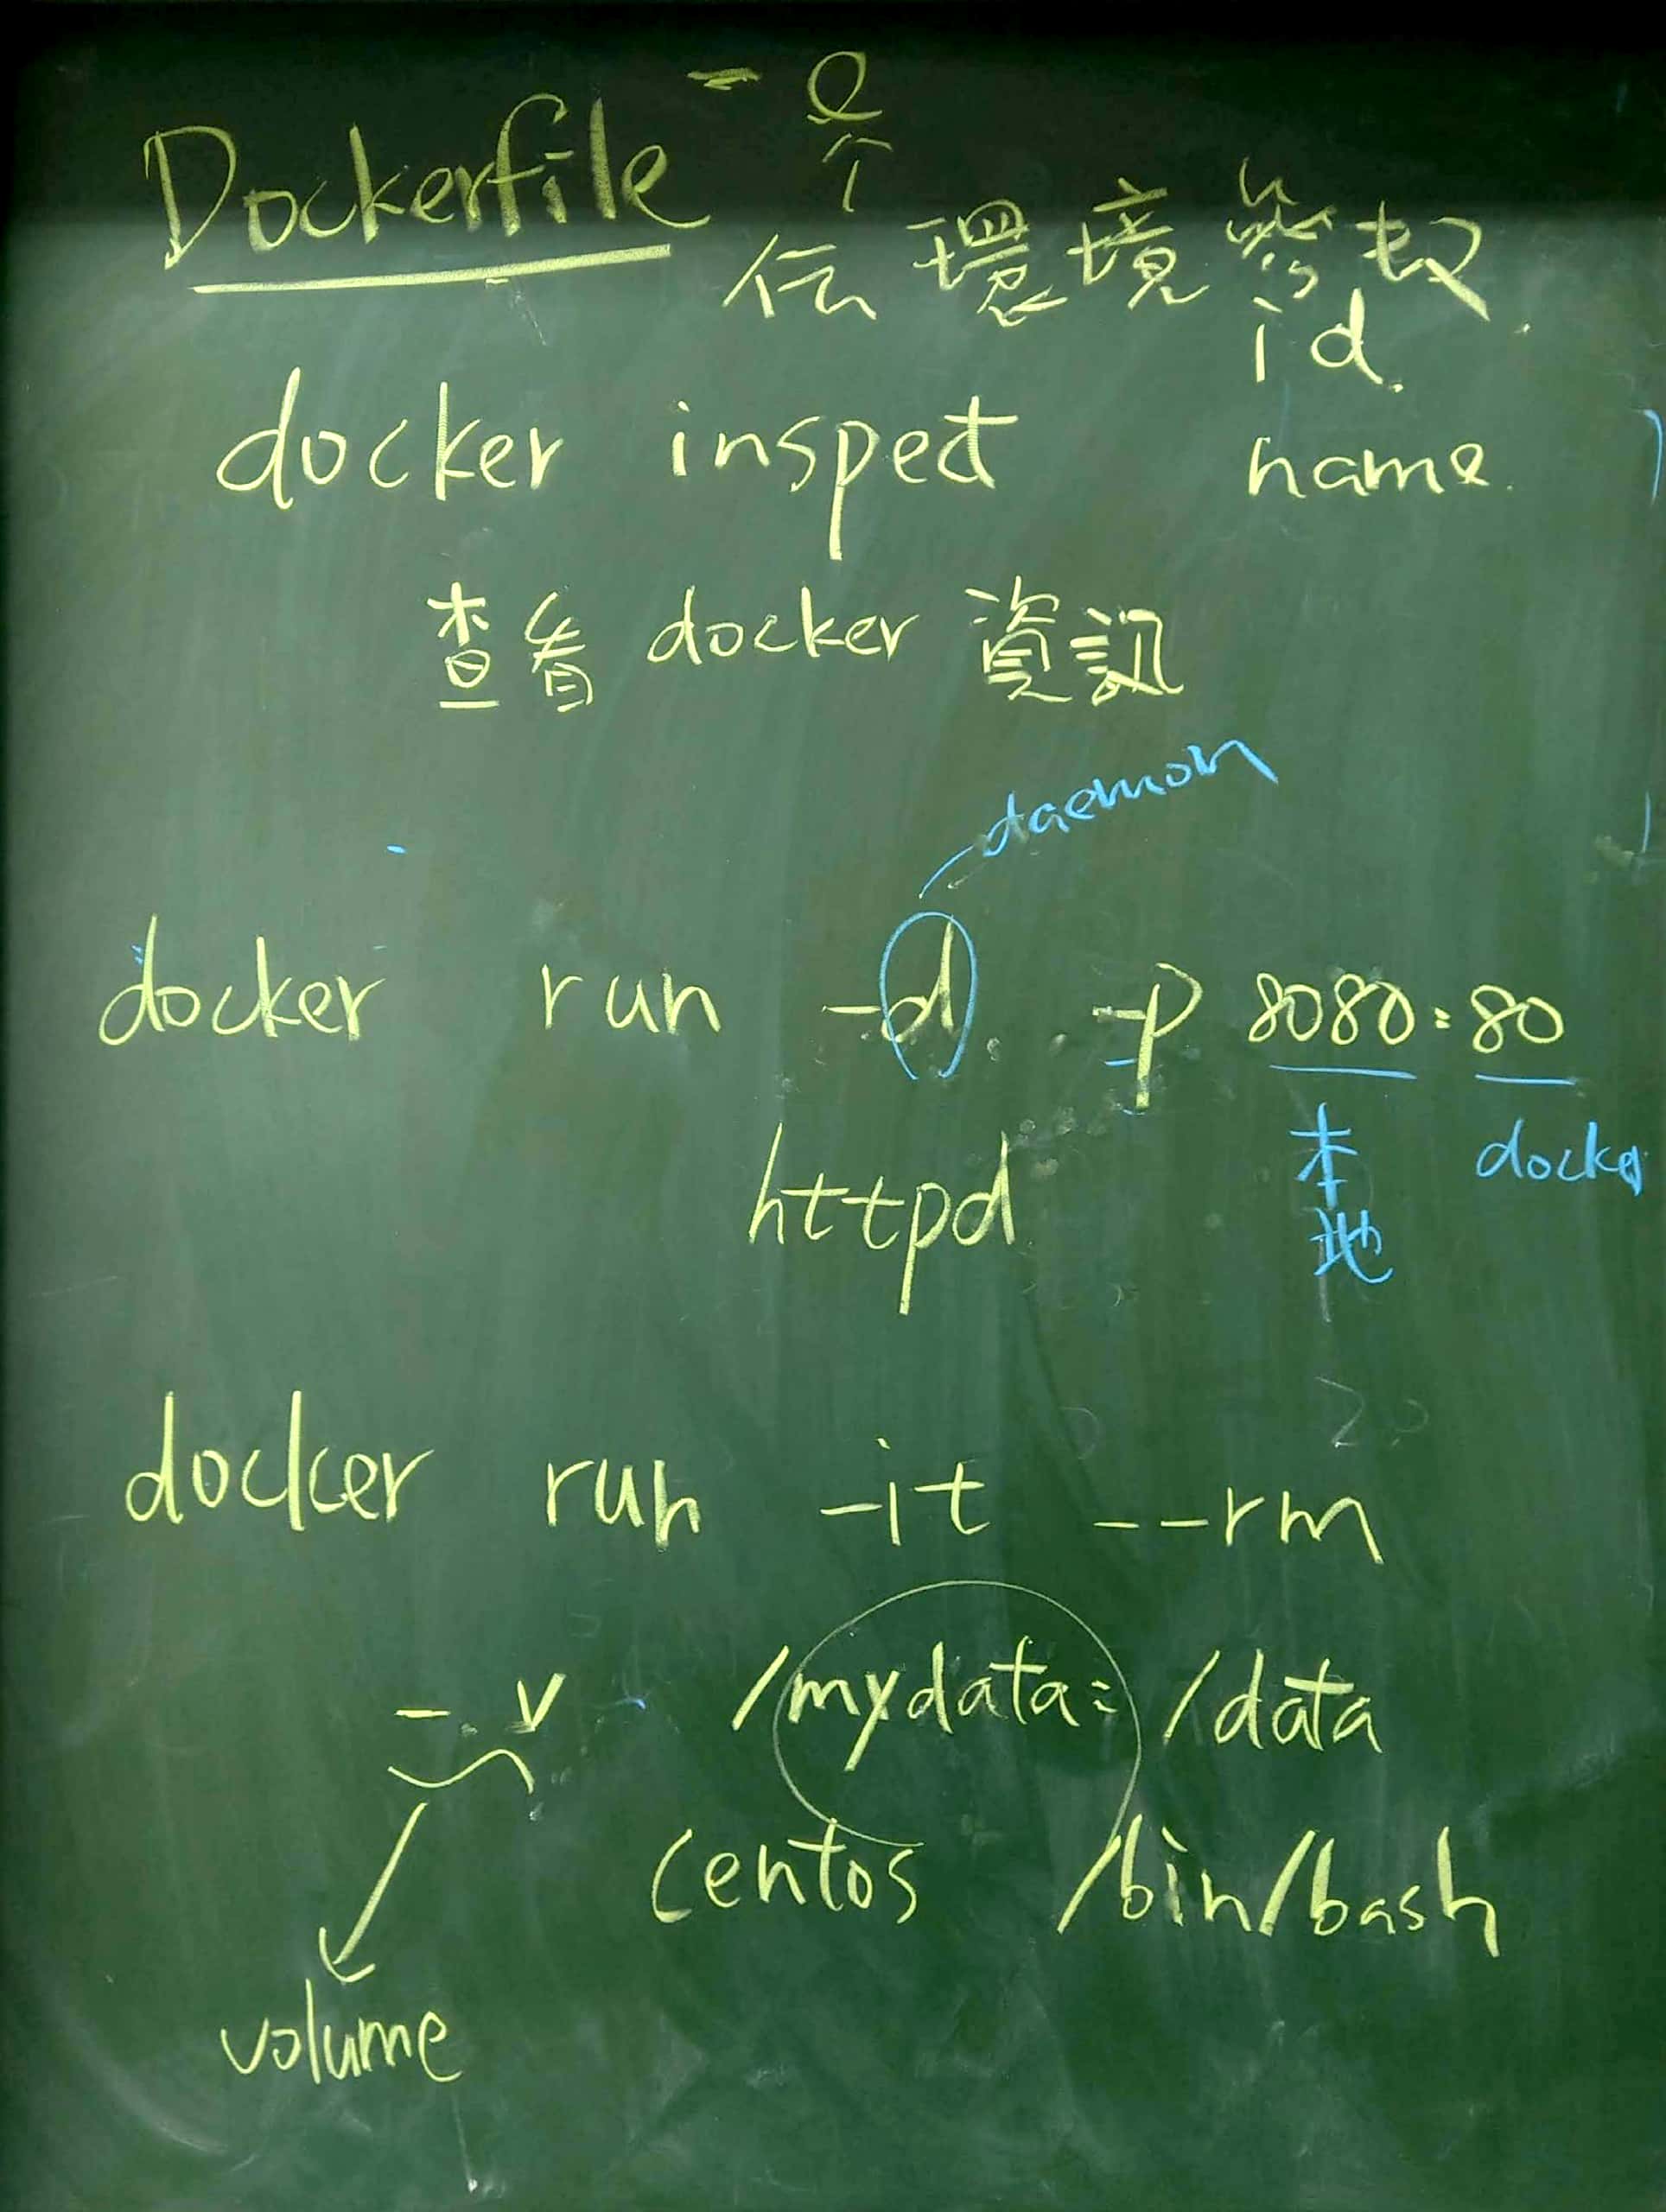 Dockerfile - e
个
伝 環境參數
id.
docker inspect name.
查看 docker 資訊
daemon
docker run -d -p 8080:80
本地 docker
httpd
docker run -it --rm
-v /mydata: /data
centos /bin/bash
volume